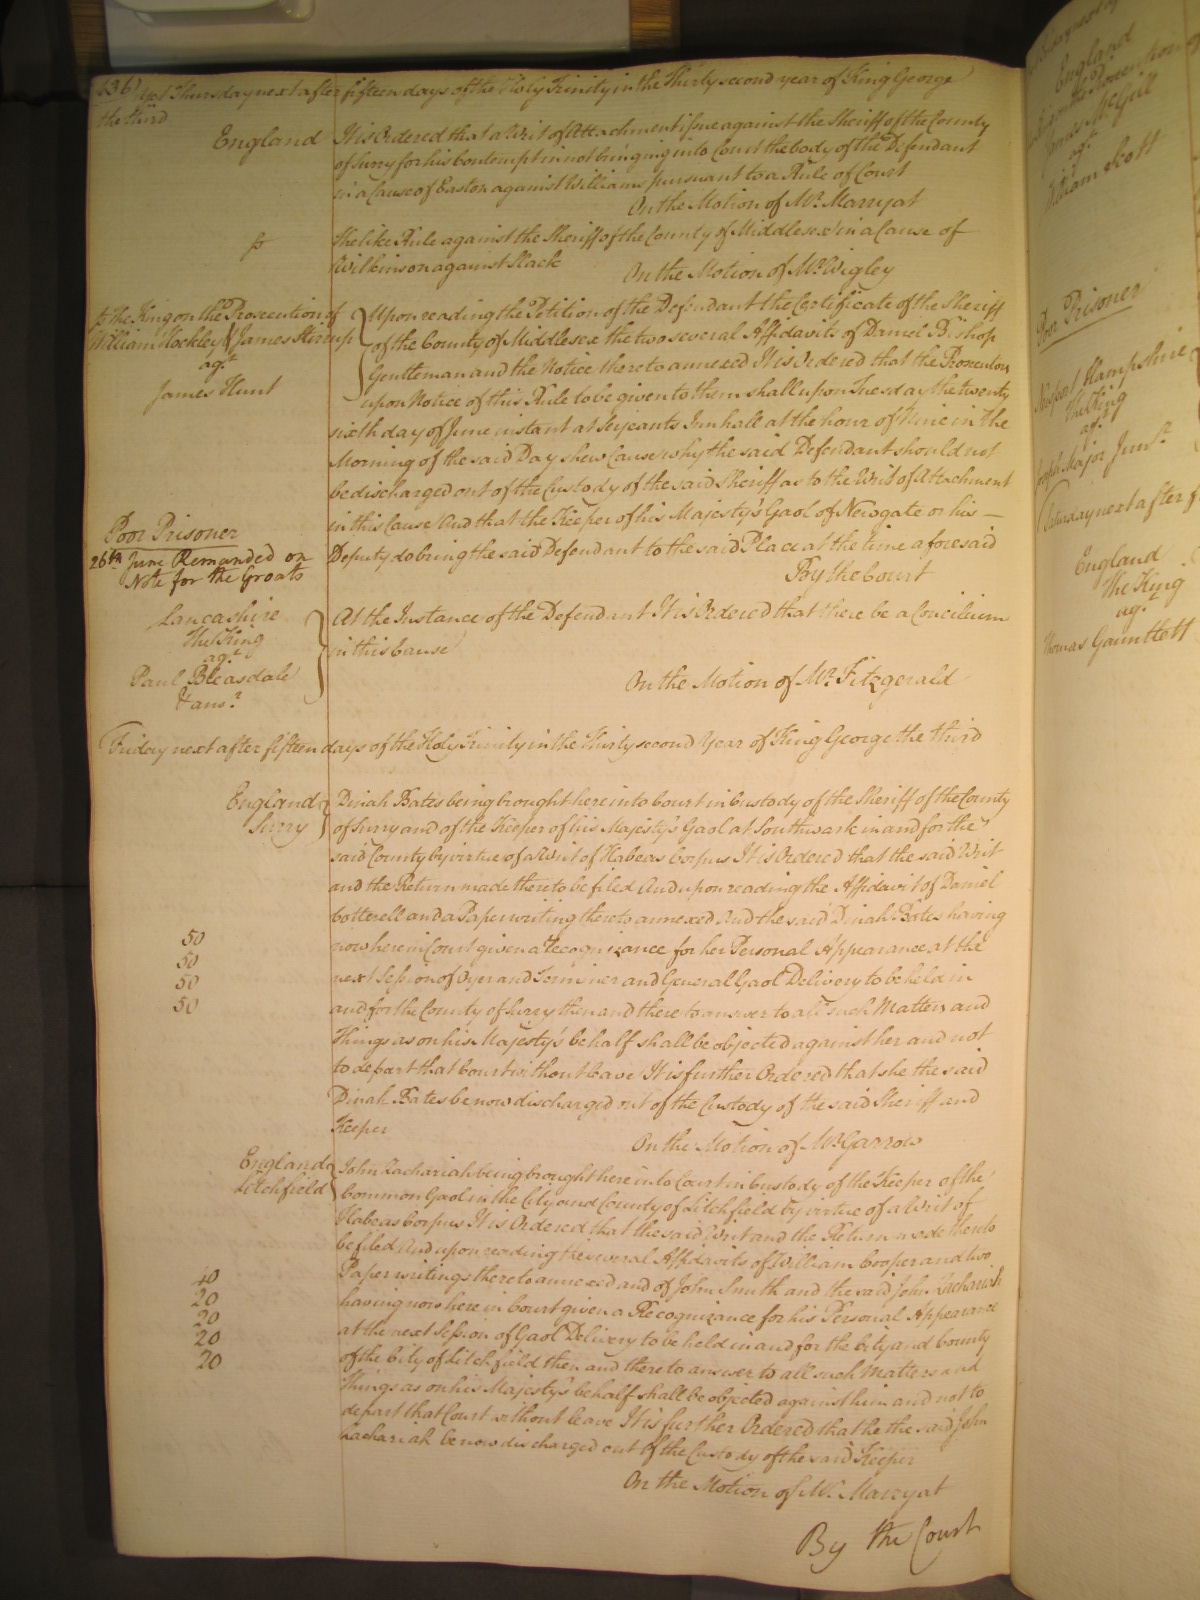 (36) yet Thursday next after fifteen days of the Holy Trinity in the Thirty second year of King George
the third
England It is Ordered that a Writ of Attachment issue against the Sheriff of the County
of Surry for his Contempt in not bringing into Court the body of the Defendant
in a Cause of Easton against Williams pursuant to a Rule of Court
On the Motion of Mr. Marryat
The like Rule against the Sheriff of the County of Middlesex in a Cause of
Wilkinson against Slack
On the Motion of Mr. Wigley
The King on the Prosecution of
William Hockley & James Stirrup
agt.
James Hunt
Upon reading the Petition of the Defendant the Certificate of the Sheriff
of the County of Middlesex the two several Affidavits of Daniel Bishop
Gentleman and the Notice thereto annexed It is Ordered that the Prosecutors
upon Notice of this Rule to be given to them shall upon Tuesday the twenty
sixth day of June instant at Serjeants Inn hall at the hour of Nine in the
Morning of the said Day shew Cause why the said Defendant should not
be discharged out of the Custody of the said Sheriff as to the Writ of Attachment
in this Cause And that the Keeper of his Majesty's Gaol of Newgate or his
Deputy do bring the said Defendant to the said Place at the time aforesaid
By the Court
Poor Prisoner
26th June Remanded on
Note for the Groats
Lancashire
The King
agt.
Paul Bleasdale
& anor.
At the Instance of the Defendant It is Ordered that there be a Concilium
in this Cause
On the Motion of Mr. Fitzgerald
Friday next after fifteen days of the Holy Trinity in the Thirty second Year of King George the third
England
Surry
Dinah Bates being brought here into Court in Custody of the Sheriff of the County
of Surry and of the Keeper of his Majesty's Gaol at Southwark in and for the
said County by virtue of a Writ of Habeas Corpus It is Ordered that the said Writ
and the Return made thereto be filed And upon reading the Affidavit of Daniel
Cotterell and a Paper writing thereto annexed And the said Dinah Bates having
now here in Court given a Recognizance for her Personal Appearance at the
next Session of Oyer and Terminer and General Gaol Delivery to be held in
and for the County of Surry then and there to answer to all such Matters and
Things as on his Majesty's behalf shall be objected against her and not
to depart that Court without leave It is further Ordered that she the said
Dinah Bates be now discharged out of the Custody of the said Sheriff and
Keeper
50
50
50
50
On the Motion of Mr. Garrow
England
Litchfield
John Zachariah being brought here into Court in Custody of the Keeper of the
Common Gaol in the City and County of Litchfield by virtue of a Writ of
Habeas Corpus It is Ordered that the said Writ and the Return made thereto
be filed And upon reading the several Affidavits of William Cooper and two
Paper writings thereto annexed and of John Smith and the said John Zachariah
having now here in Court given a Recognizance for his Personal Appearance
at the next Session of Gaol Delivery to be held in and for the City and County
of the City of Litchfield then and there to answer to all such Matters and
Things as on his Majesty's behalf shall be objected against him and not to
depart that Court without leave It is further Ordered that he the said John
Zachariah be now discharged out of the Custody of the said Keeper
40
20
20
20
20
On the Motion of Mr. Marryat
By the Court
England
William Scott
Poor Prisoner
Hampshire
The King
agt.
Major Junr.
Saturday next after f
England
The King
agt.
Thomas Gauntlett